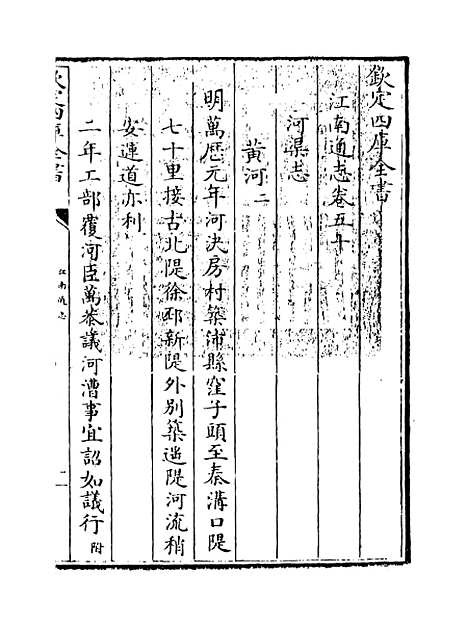 欽定四庫全書
江南通志卷五十
河渠志
黄河二
明萬厯元年河決房村築沛縣窪子頭至秦溝口隄
七十里接古北隄徐邳新隄外别築遥隄河流稍
安運道亦利
二年工部覆河臣萬恭議河漕事宜詔如議行附
欽定四庫全書
江南通志